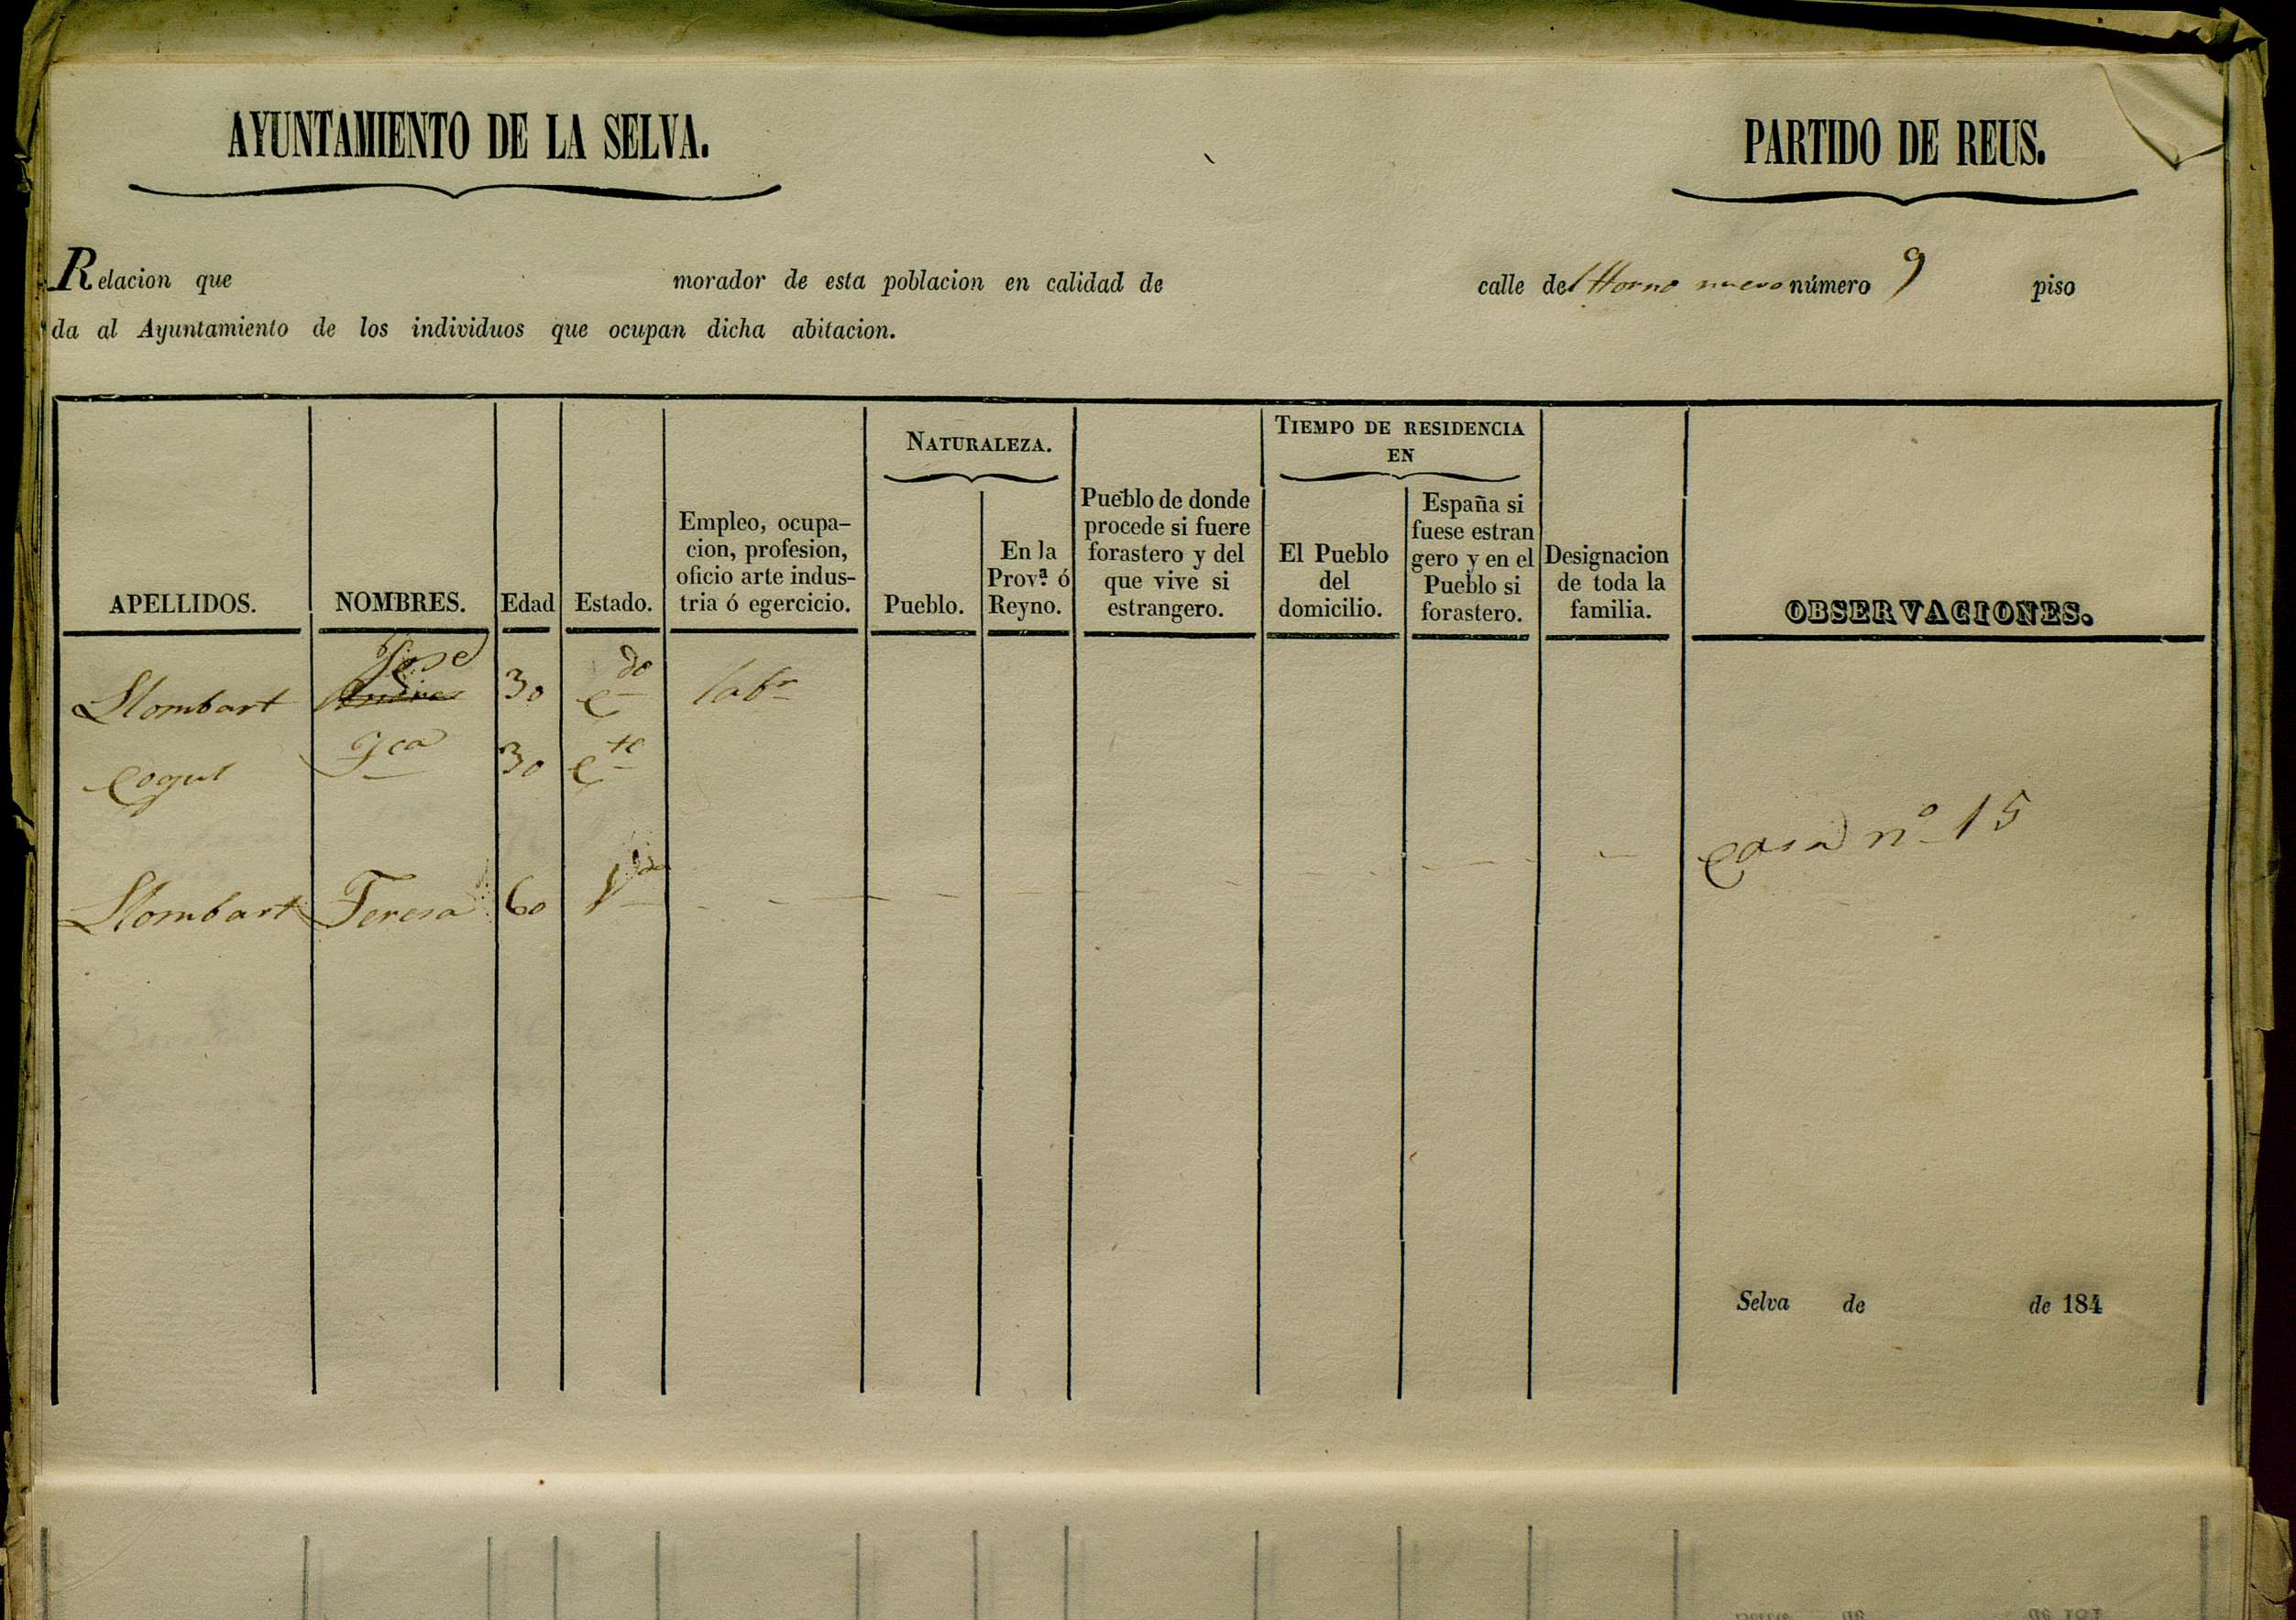 AYUNTAMIENTO DE LA SELVA.
PARTIDO DE REUS.
Relacion que morador de esta poblacion en calidad de calle del Horno nuevo número 9 piso
da al Ayuntamiento de los individuos que ocupan dicha abitacion.
APELLIDOS.
NOMBRES.
Edad
Estado.
Empleo, ocupa-
cion, profesion,
oficio arte indus-
tria ó egercicio.
NATURALEZA.
Pueblo.
En la
Prov.ª ó
Reyno.
Pueblo de donde
procede si fuere
forastero y del
que vive si
estrangero.
TIEMPO DE RESIDENCIA
EN
El Pueblo
del
domicilio.
España si
fuese estran
gero y en el
Pueblo si
forastero.
Designacion
de toda la
familia.
OBSERVACIONES.
Jose
Llombart Andres 30 C.do lab.r
Cogul Fca 30 C.te
Llombart Teresa 60 V.da
Casa nº 15
Selva de de 184